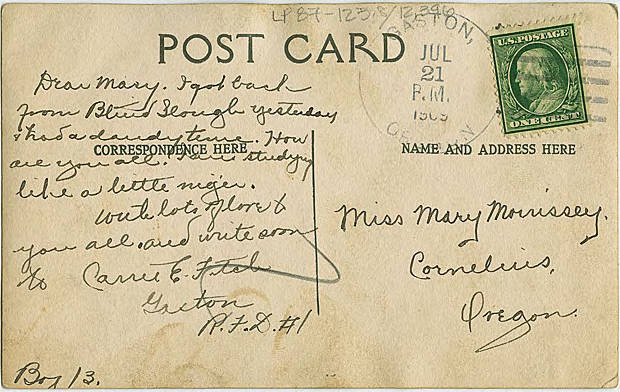 LP 87-1235/12396
POST CARD
GASTON,
JUL
21
P.M.
1909
OREGON
U.S. POSTAGE
ONE CENT
Dear Mary. I got back
from Blind Slough yesterday
& had a dandy time. How
are you all. I am studying
like a little niger.
With lots of love to
you all, and write soon
to Carrie E. Fitch
Gaston
R.F.D. #1
Box 13.
CORRESPONDENCE HERE
NAME AND ADDRESS HERE
Miss Mary Morrissey.
Cornelius,
Oregon.